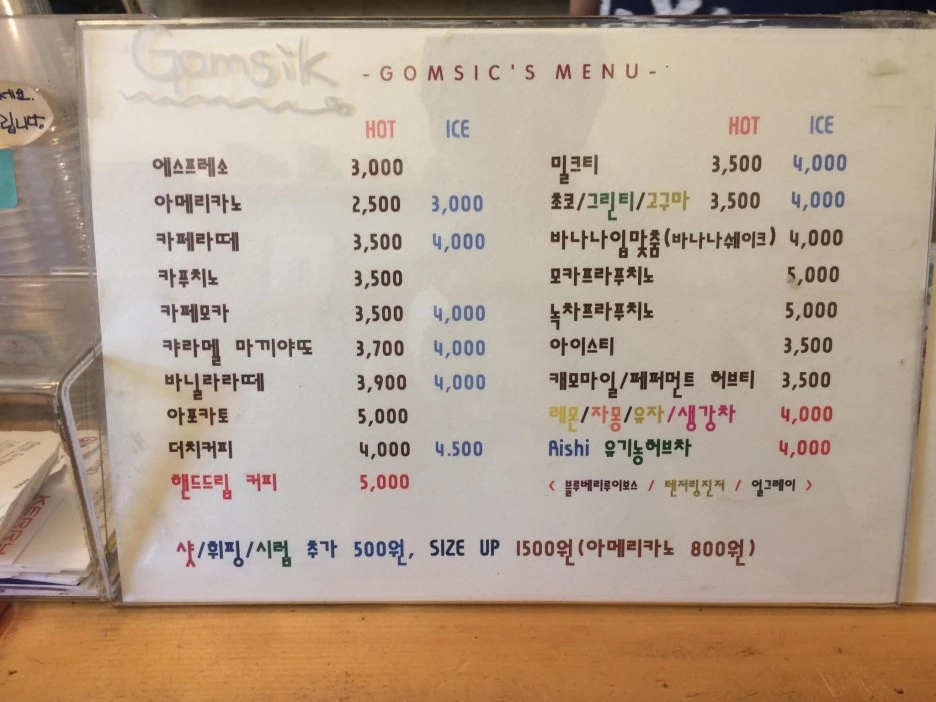 Gomsik
-GOMSIC'S MENU-
HOT ICE
에스프레소 3,000
아메리카노 2,500 3,000
카페라떼 3,500 4,000
카푸치노 3,500
카페모카 3,500 4,000
캬라멜 마끼야또 3,700 4,000
바닐라라떼 3,900 4,000
아포카토 5,000
더치커피 4,000 4.500
핸드드립 커피 5,000
HOT ICE
밀크티 3,500 4,000
초코/그린티/고구마 3,500 4,000
바나나입맞춤(바나나쉐이크) 4,000
모카프라푸치노 5,000
녹차프라푸치노 5,000
아이스티 3,500
캐모마일/페퍼먼트 허브티 3,500
레몬/자몽/유자/생강차 4,000
Rishi 유기농허브차 4,000
< 블루베리루이보스 / 텐저링진저 / 얼그레이 >
샷/휘핑/시럽 추가 500원, SIZE UP 1500원(아메리카노 800원)
KERRY